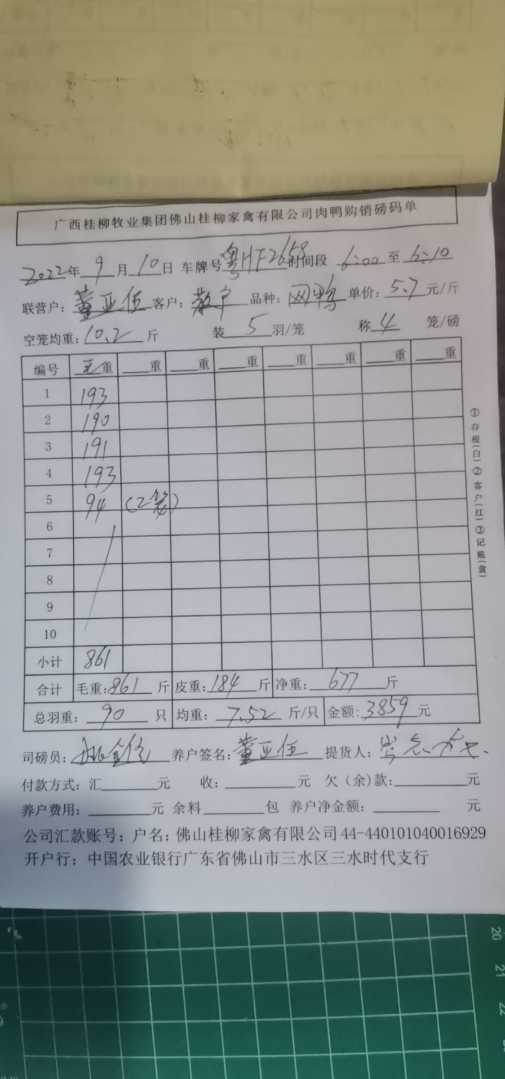 广西桂柳牧业集团佛山桂柳家禽有限公司肉鸭购销磅码单
2022年 9 月 10 日 车牌号 粤HF2658 时间段 6:00 至 6:10
联营户: 董亚伍 客户: 散户 品种: 网鸭 单价: 5.7 元/斤
空笼均重: 10.2 斤 装 5 羽/笼 称 4 笼/磅
编号 毛重 重 重 重 重 重 重 重
1 193
2 190
3 191
4 193
5 94 (2笼)
6
7
8
9
10
小计 861
合计 毛重: 861 斤 皮重: 184 斤 净重: 677 斤
总羽重: 90 只 均重: 7.52 斤/只 金额: 3859 元
司磅员: 养户签名: 董亚伍 提货人:
付款方式: 汇 元 收: 元 欠(余)款: 元
养户费用: 元 余料 包 养户净金额: 元
公司汇款账号: 户名: 佛山桂柳家禽有限公司 44-440101040016929
开户行: 中国农业银行广东省佛山市三水区三水时代支行
①存根(白)②客户(红)③记账(黄)
20
21
22